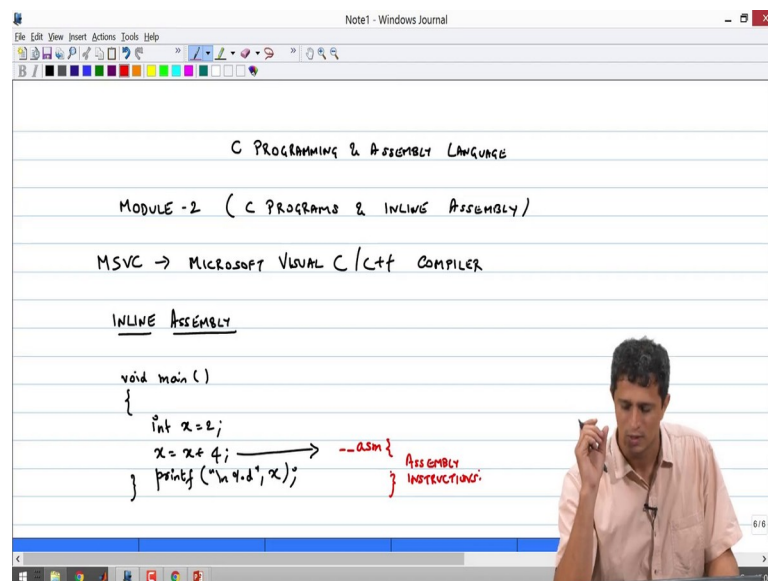 Note1 - Windows Journal
File Edit View Insert Actions Tools Help
B I
C PROGRAMMING & ASSEMBLY LANGUAGE
MODULE - 2 ( C PROGRAMS & INLINE ASSEMBLY )
MSVC → MICROSOFT VISUAL C/C++ COMPILER
INLINE ASSEMBLY
void main ()
{
int x = 2;
x = x + 4; → __asm {
ASSEMBLY
} printf ("\n %d", x); } INSTRUCTIONS.
6/6